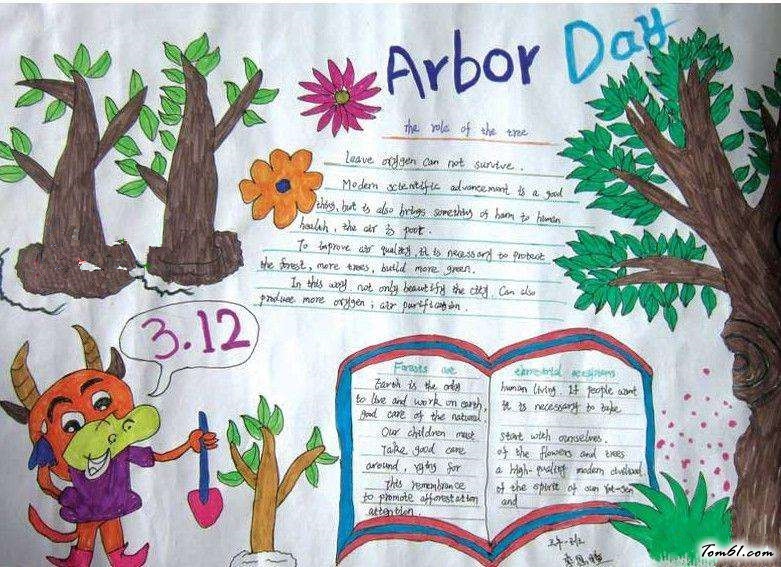 Arbor Day
The role of the tree
Leave oxygen can not survive.
Modern scientific advancement is a good
thing, but is also brings something of harm to human
health, the air is poor.
To improve air quality, it is necessary to protect
the forest, more trees, build more green.
In this way, not only beautify the city, Can also
produce more oxygen; air purification.
3.12
Forests are
Earth is the only
to live and work on earth,
good care of the natural.
Our children must
Take good care
around, for
This remembrance
to promote afforestation
attention
terrestrial ecosystems
human living. If people want
It is necessary to take
start with ourselves.
of the flowers and trees
a high-quality modern
of the spirit of sun Yat-sen
and
Tom61.com